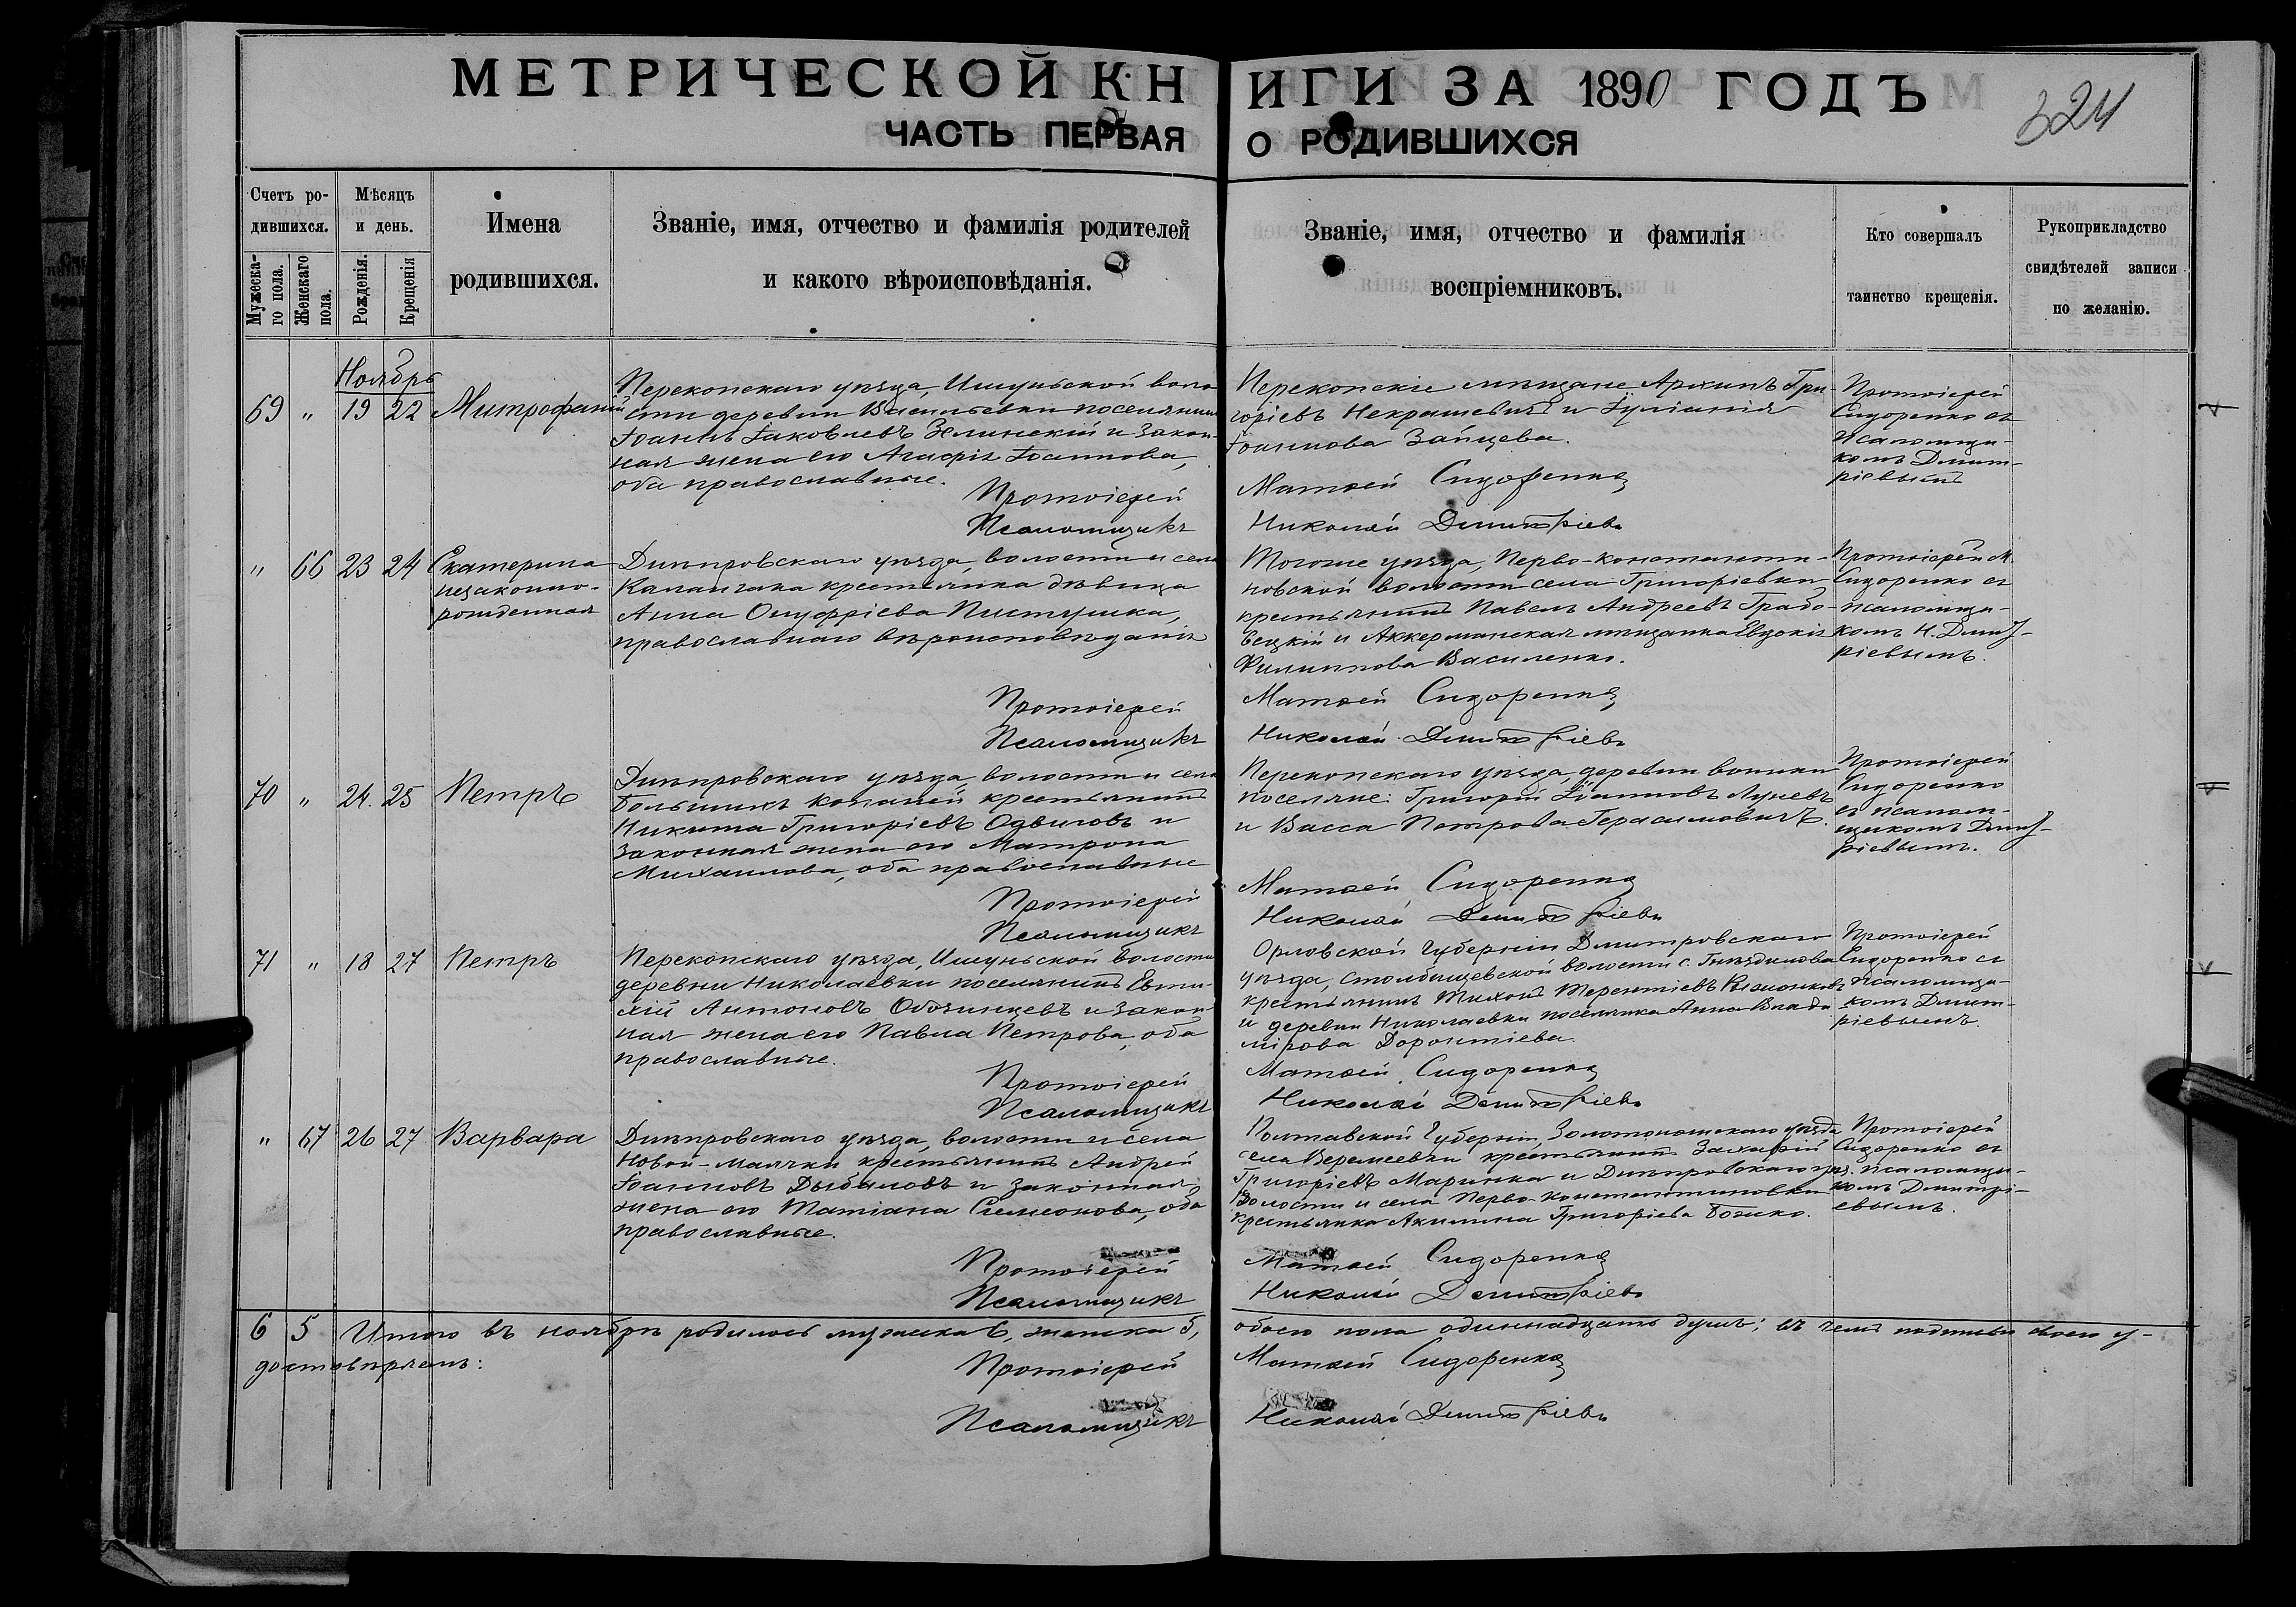 МЕТРИЧЕСКОЙ КНИГИ ЗА 1890 ГОДЪ
324
ЧАСТЬ ПЕРВАЯ О РОДИВШИХСЯ
Счетъ ро-
дившихся.
Мужеска-
го пола.
Женскаго
пола.
Мѣсяцъ
и день.
Рожденія.
Крещенія
Имена
родившихся.
Званіе, имя, отчество и фамилія родителей
и какого вѣроисповѣданія.
Званіе, имя, отчество и фамилія
воспріемниковъ.
Кто совершалъ
таинство крещенія.
Рукоприкладство
свидѣтелей записи
по желанію.
Ноябрь
69 " 19 22 Митрофаній
Перекопскаго уѣзда, Ишуньской воло-
сти деревни Васильевки поселянинъ
Іоаннъ Іаковлевъ Зелинскій и закон-
ная жена его Агафія Іоаннова,
оба православные.
Перекопскіе мѣщане Архипъ Гри-
горіевъ Некрашевичъ и Іуліанія
Іоаннова Зайцева.
Протоіерей
Сидоренко съ
псаломщи-
комъ Димит-
ріевымъ
Протоіерей Матѳей Сидоренко
Псаломщикъ Николай Димитріевъ
" 66 23 24 Екатерина
незаконно-
рожденная
Днѣпровскаго уѣзда, волости и села
Каланчака крестьянка дѣвица
Анна Онуфріева Пистушка,
православнаго вѣроисповѣданія
Тогоже уѣзда, Перво-константи-
новской волости села Григорьевки
крестьянинъ Павелъ Андреевъ Грабо-
вецкій и Аккерманская мѣщанка Евдокія
Филиппова Василенко.
Протоіерей М.
Сидоренко съ
псаломщи-
комъ Н. Димит-
ріевымъ.
Протоіерей Матѳей Сидоренко
Псаломщикъ Николай Димитріевъ
70 " 24. 25 Петръ
Днѣпровскаго уѣзда, волости и села
Большихъ Копаней крестьянинъ
Никита Григоріевъ Одвиговъ и
законная жена его Матрона
Михаилова, оба православные
Перекопскаго уѣзда, деревни
поселяне: Григорій Іоанновъ Луневъ
и Васса Петрова Герасимовичъ.
Протоіерей
Сидоренко
съ псалом-
щикомъ Димит-
ріевымъ.
Протоіерей Матѳей Сидоренко
Псаломщикъ Николай Димитріевъ
71 " 18 27 Петръ
Перекопскаго уѣзда, Ишуньской волости
деревни Николаевки поселянинъ Евти-
хій Антоновъ Обозинцевъ и закон-
ная жена его Павла Петрова, оба
православные.
Орловской губерніи Дмитровскаго
уѣзда, Столбищевской волости с. Гнѣздилова
крестьянинъ Тихонъ Терентіевъ
и деревни Николаевки поселянка Анна Влади-
мірова Дорофтіева.
Протоіерей
Сидоренко съ
псаломщи-
комъ Димит-
ріевымъ.
Протоіерей Матѳей Сидоренко
Псаломщикъ Николай Димитріевъ
" 67 26 27 Варвара
Днѣпровскаго уѣзда, волости и села
Новой-Маячки крестьянинъ Андрей
Іоанновъ Дыбаловъ и законная
жена его Татіана Симеонова, оба
православные.
Полтавской губерніи, Золотоношскаго уѣзда
села Веремеевки крестьянинъ Захарій
Григоріевъ Маринка и Днѣпровскаго уѣз.
волости и села Перво-константиновки
крестьянка Акилина Григоріева Божко.
Протоіерей
Сидоренко съ
псаломщи-
комъ Димитрі-
евымъ.
Протоіерей Матѳей Сидоренко
Псаломщикъ Николай Димитріевъ
6 5 Итого въ ноябрѣ родилось мужска 6, женска 5, обоего пола одиннадцать душъ; въ чемъ подписью своею у-
достовѣряемъ:
Протоіерей Матѳей Сидоренко
Псаломщикъ Николай Димитріевъ